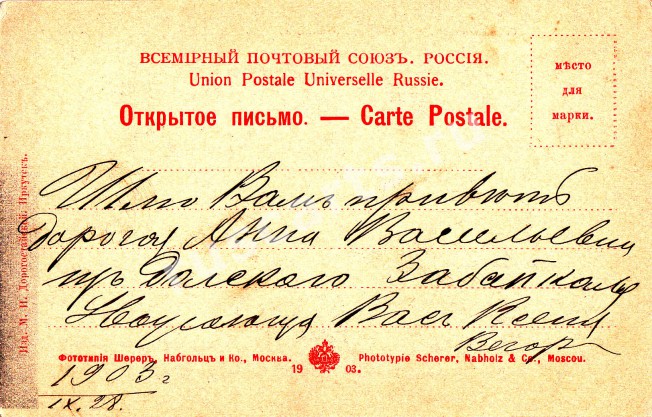 ВСЕМІРНЫЙ ПОЧТОВЫЙ СОЮЗЪ. РОССІЯ.
Union Postale Universelle Russie.
Открытое письмо. — Carte Postale.
мѣсто
для
марки.
Шлю Вамъ приветъ
Дорогая Анна Васильевна
Забайкалья
Васъ
1903 г
IX. 28.
Изд. М. И. Дорогостайской. Иркутскъ.
Фототипія Шереръ, Набгольцъ и Ко., Москва.
Phototypie Scherer, Nabholz & Co., Moscou.
19 03.